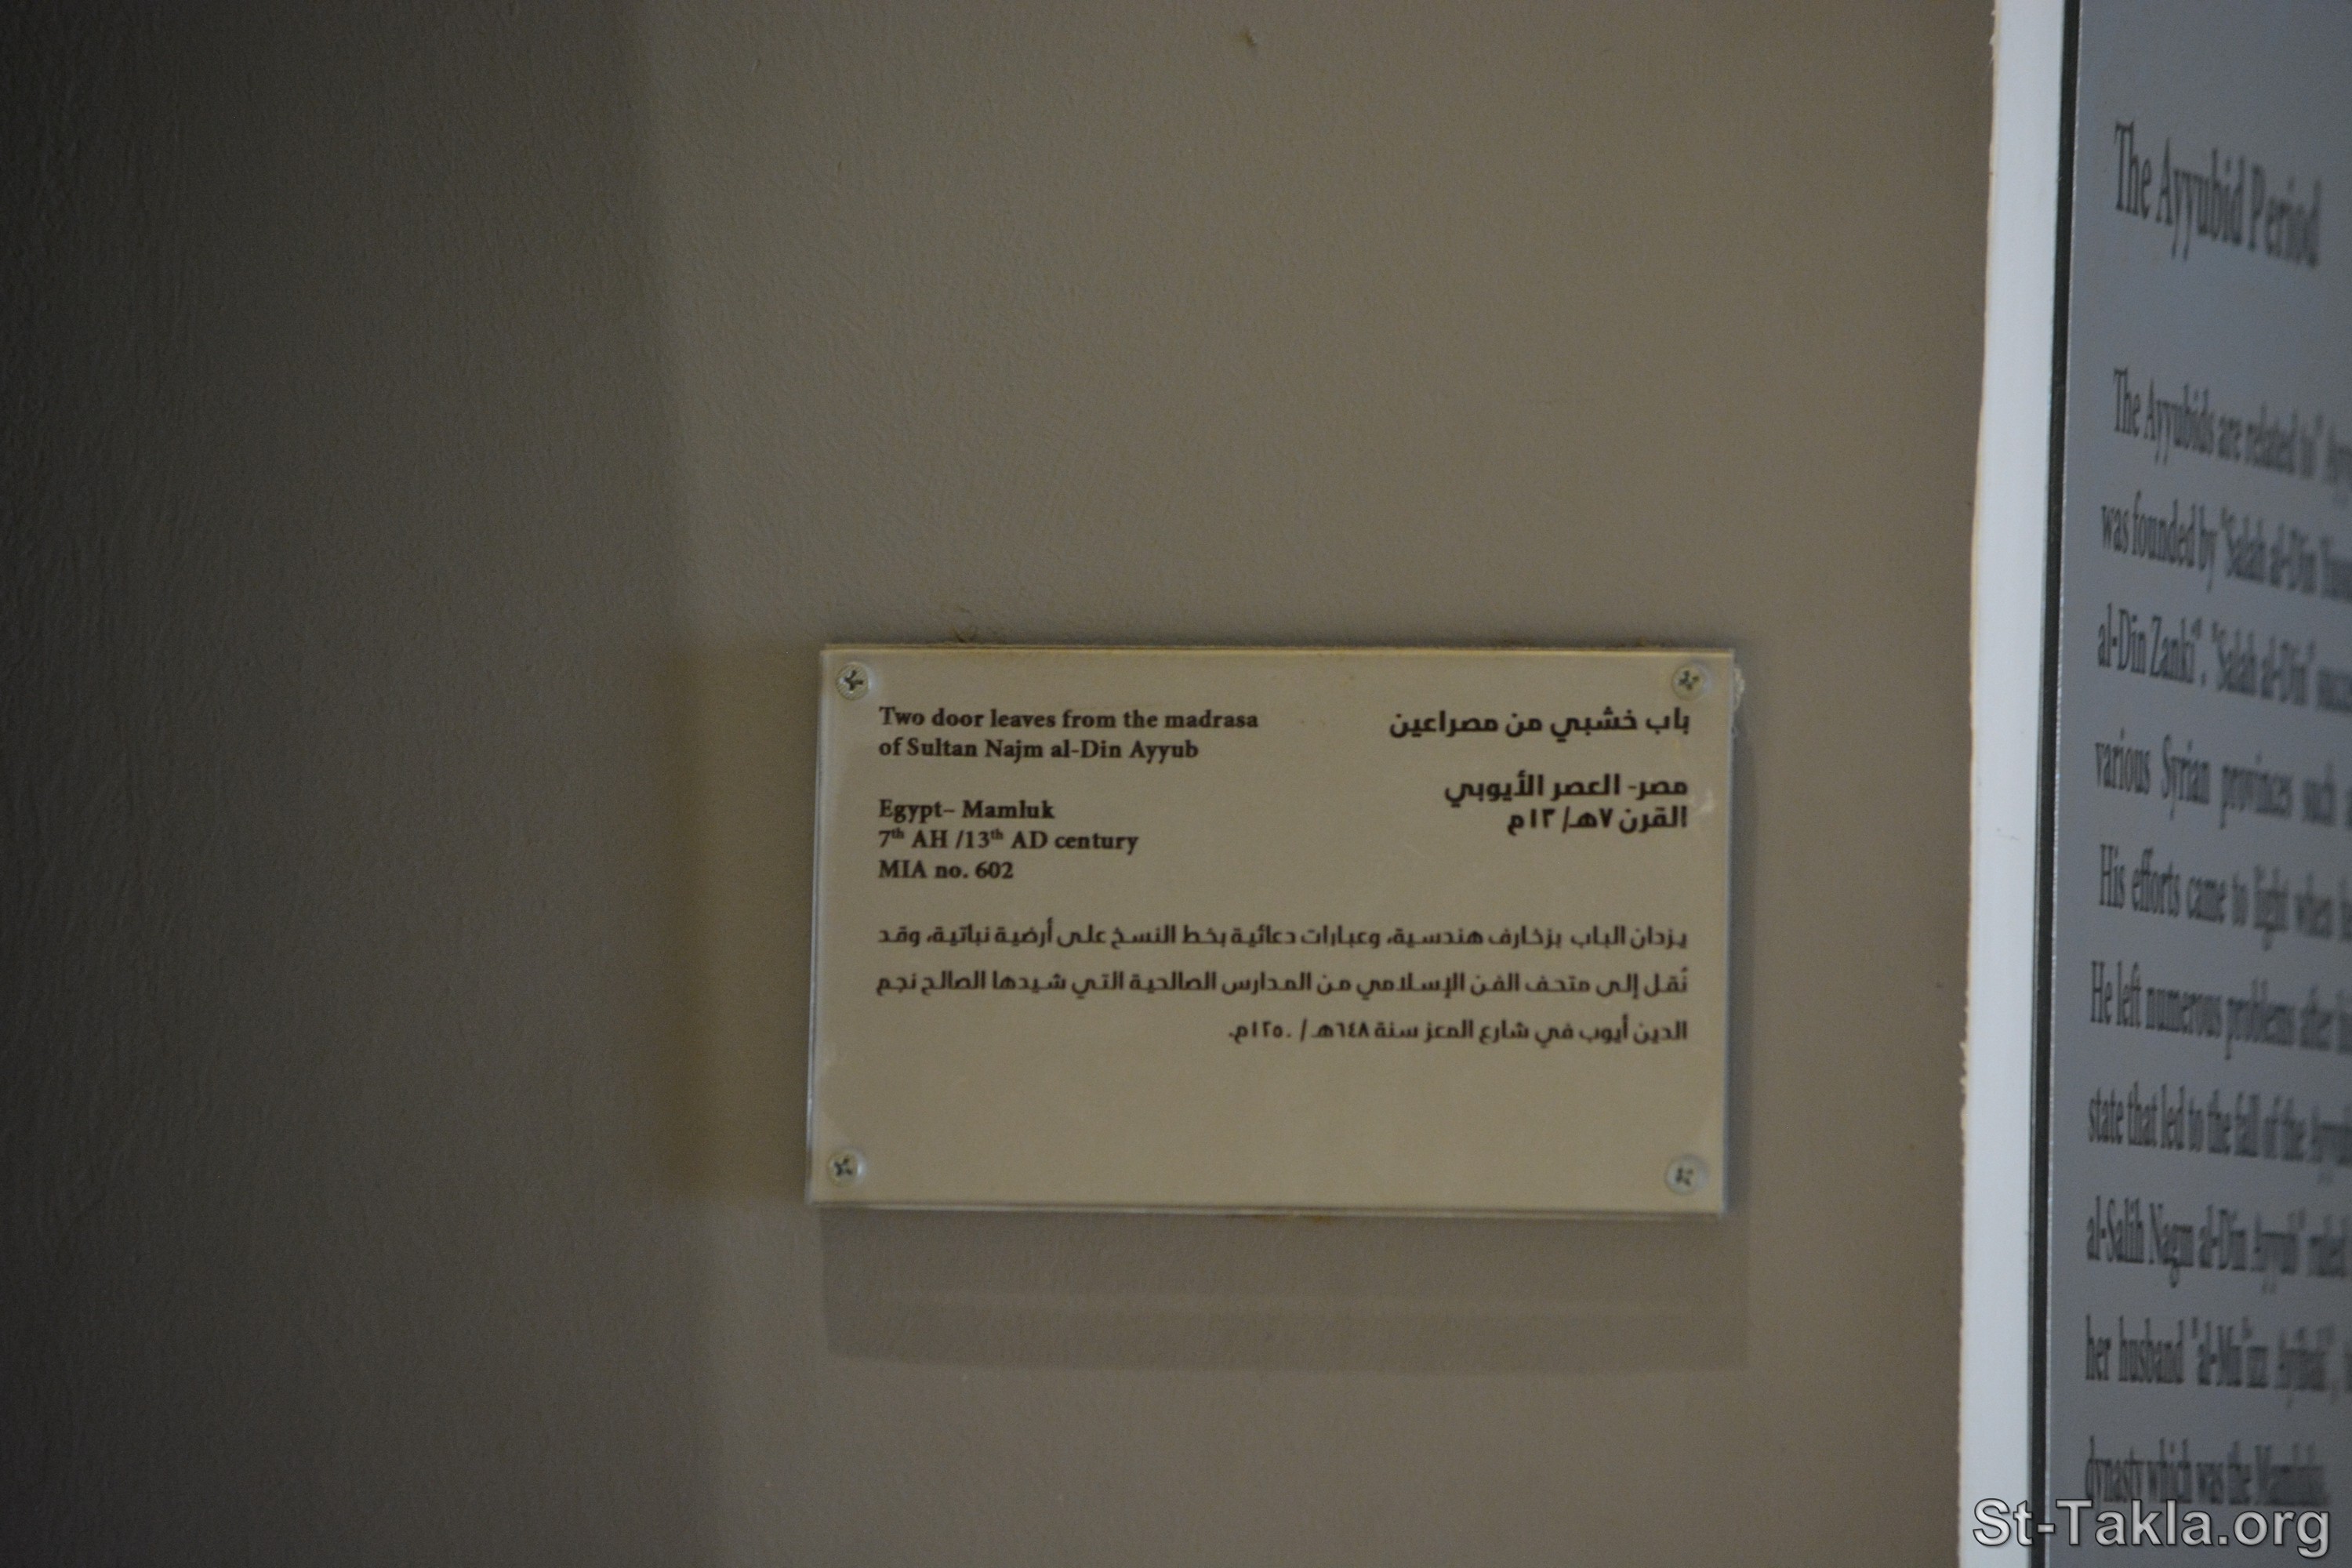 Two door leaves from the madrasa
of Sultan Najm al-Din Ayyub
Egypt– Mamluk
7th AH /13th AD century
MIA no. 602
باب خشبي من مصراعين
مصر- العصر الأيوبي
القرن ٧هـ/ ١٣م
يزدان الباب بزخارف هندسية، وعبارات دعائية بخط النسخ على أرضية نباتية، وقد
نُقل إلى متحف الفن الإسلامي من المدارس الصالحية التي شيدها الصالح نجم
الدين أيوب في شارع المعز سنة ٦٤٨هـ/ ١٢٥٠م.
The Ayyubid Period
The Ayyubids are related to "
was founded by "Salah al-Din
al-Din Zanki". "Salah al-Din"
various Syrian provinces such
His efforts came to light when
He left numerous problems after
state that led to the fall of the
al-Salih Nagm al-Din Ayyub" ruled
her husband
dynasty which was the Mamluks.
St-Takla.org